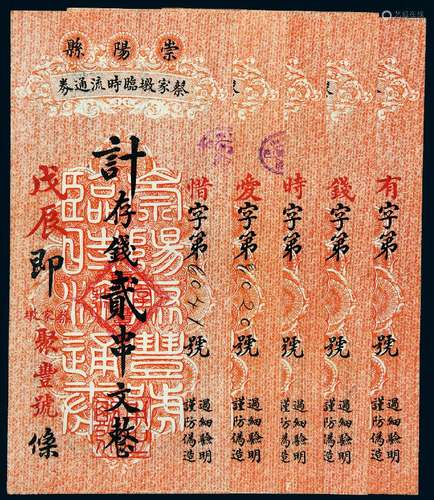 崇陽縣
蔡家墩臨時流通券
有字第號
過細驗明
謹防偽造
錢字第號
過細驗明
謹防偽造
時字第號
過細驗明
謹防偽造
愛字第8020號
過細驗明
謹防偽造
惜字第6041號
過細驗明
謹防偽造
計存錢貳串文整
戊辰即
蔡家墩
聚豐號條